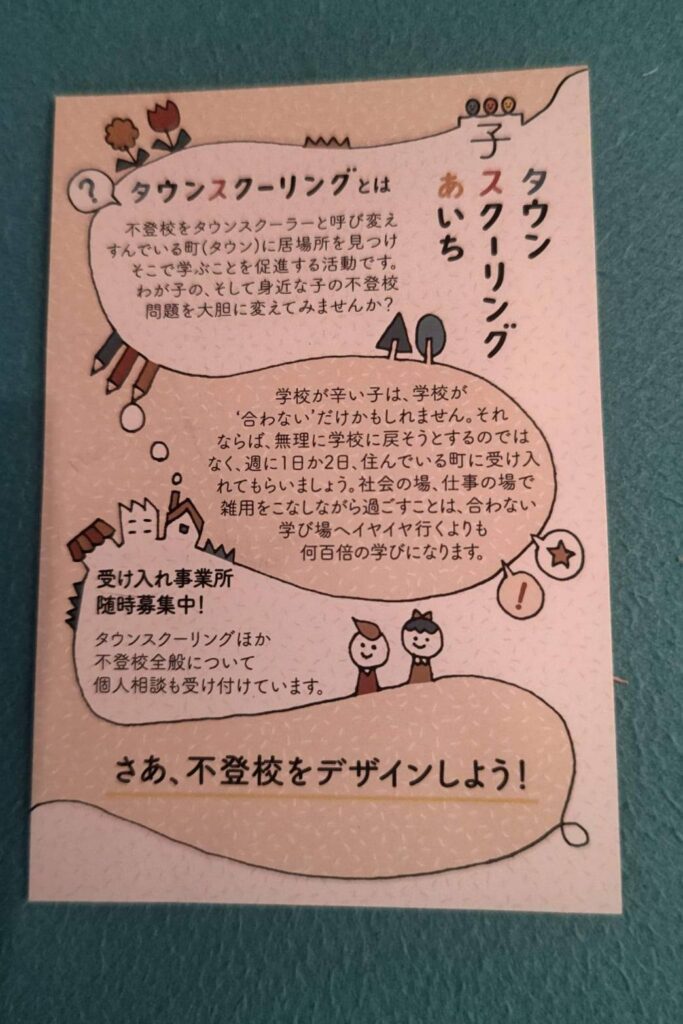 子
タウン
スクーリング
あいち
?
タウンスクーリングとは
不登校をタウンスクーラーと呼び変え
すんでいる町(タウン)に居場所を見つけ
そこで学ぶことを促進する活動です。
わが子の、そして身近な子の不登校
問題を大胆に変えてみませんか?
学校が辛い子は、学校が
‘合わない’だけかもしれません。それ
ならば、無理に学校に戻そうとするのでは
なく、週に1日か2日、住んでいる町に受け入
れてもらいましょう。社会の場、仕事の場で
雑用をこなしながら過ごすことは、合わない
学び場へイヤイヤ行くよりも
何百倍の学びになります。
!
受け入れ事業所
随時募集中!
タウンスクーリングほか
不登校全般について
個人相談も受け付けています。
さあ、不登校をデザインしよう!